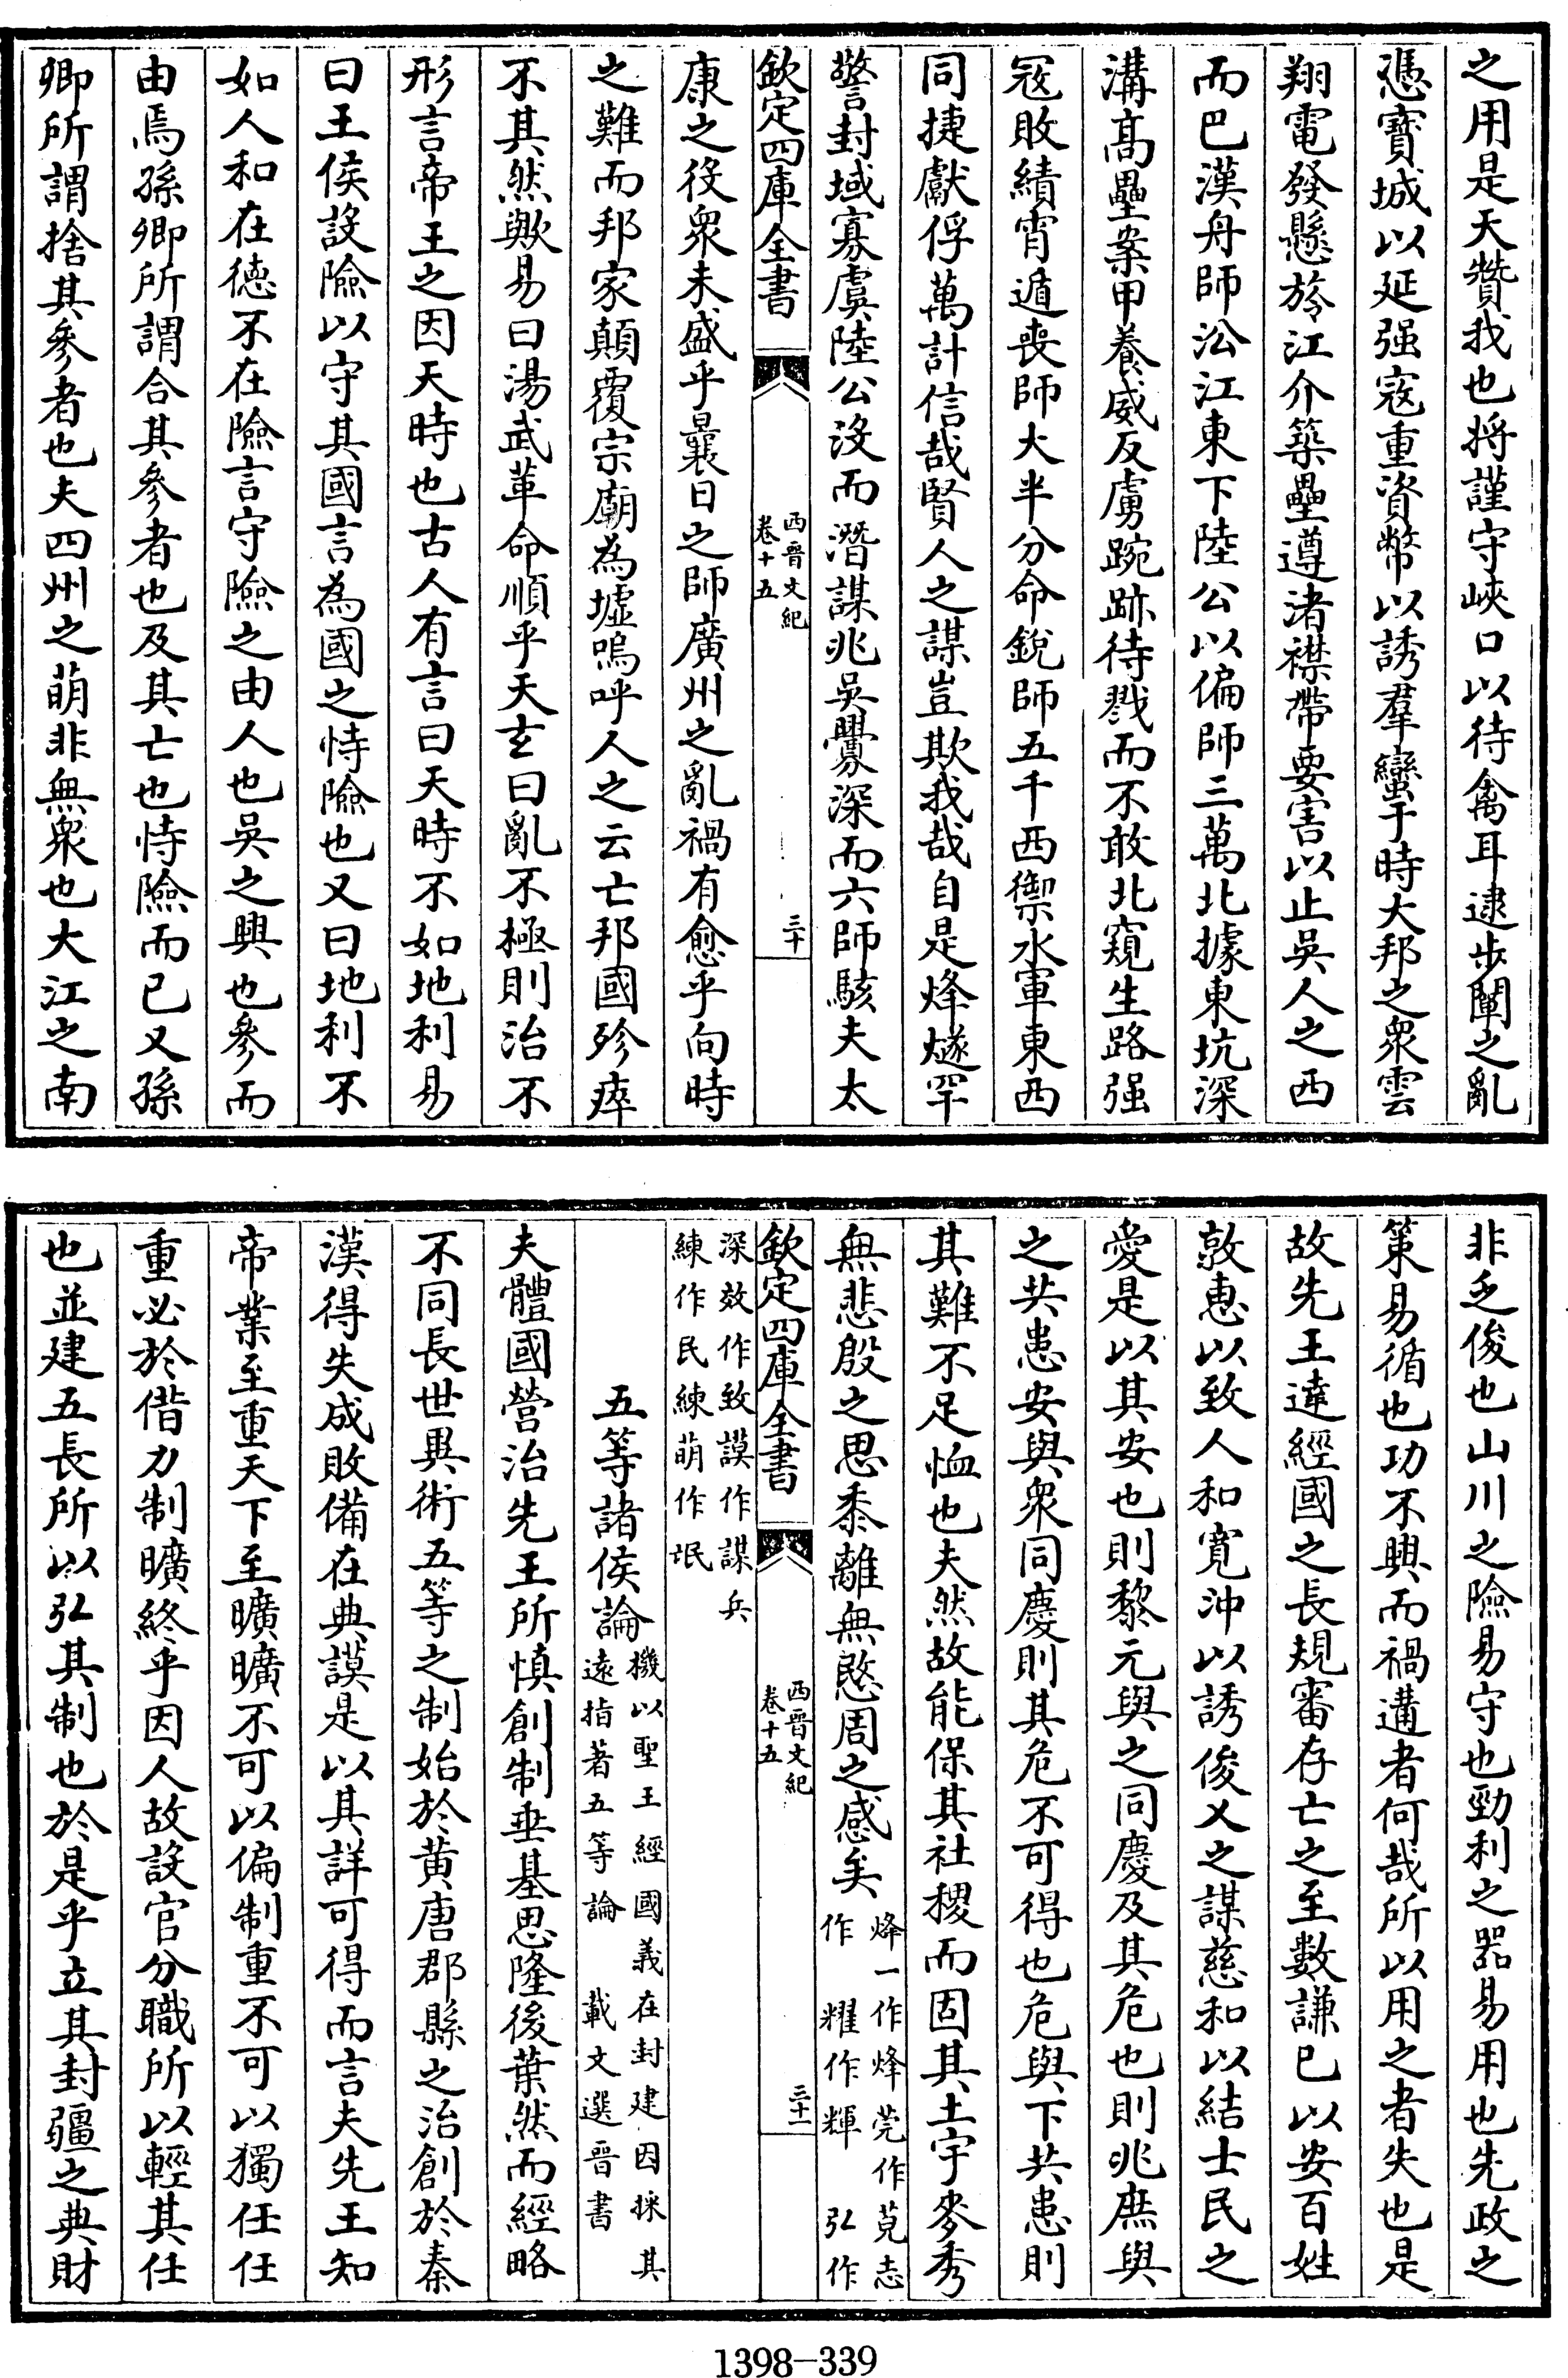 之用是天贊我也将謹守峽口以待禽耳逮步闡之亂
憑寳城以延强寇重資幣以誘羣蠻于時大邦之衆雲
翔電發懸旍江介築壘遵渚襟帶要害以止吳人之西
而巴漢舟師沿江東下陸公以偏師三萬北據東坑深
溝髙壘案甲養威反虜踠跡待戮而不敢北窺生路强
冦敗績宵遁喪師大半分命銳師五千西禦水軍東西
同捷獻俘萬計信哉賢人之謀豈欺我哉自是烽燧罕
警封域寡虞陸公沒而潛謀兆吳釁深而六師駭夫太
欽定四庫全書
西晉文紀
卷十五
三十
康之役衆未盛乎曩日之師廣州之亂禍有愈乎向時
之難而邦家顛覆宗廟為墟嗚呼人之云亡邦國殄瘁
不其然歟易曰湯武革命順乎天玄曰亂不極則治不
形言帝王之因天時也古人有言曰天時不如地利易
曰王侯設險以守其國言為國之恃險也又曰地利不
如人和在德不在險言守險之由人也吳之興也參而
由焉孫卿所謂合其參者也及其亡也恃險而已又孫
卿所謂捨其參者也夫四州之萌非無衆也大江之南
非乏俊也山川之險易守也勁利之器易用也先政之
策易循也功不興而禍遘者何哉所以用之者失也是
故先王達經國之長規審存亡之至數謙已以安百姓
敦惠以致人和寛沖以誘俊乂之謀慈和以結士民之
愛是以其安也則黎元與之同慶及其危也則兆庶與
之共患安與衆同慶則其危不可得也危與下共患則
其難不足恤也夫然故能保其社稷而固其土宇麥秀
無悲殷之思黍離無愍周之感矣
烽一作烽莞作莧志
作 耀作輝 弘作
欽定四庫全書
西晉文紀
卷十五
三十一
深效作致謨作謀兵
練作民練萌作氓
五等諸侯論
機以聖王經國義在封建因採其
遠指著五等論 載文選晉書
夫體國營治先王所慎創制垂基思隆後葉然而經略
不同長世異術五等之制始於黃唐郡縣之治創於秦
漢得失成敗備在典謨是以其詳可得而言夫先王知
帝業至重天下至曠曠不可以偏制重不可以獨任任
重必於借力制曠終乎因人故設官分職所以輕其任
也並建五長所以弘其制也於是乎立其封疆之典財
1398-339